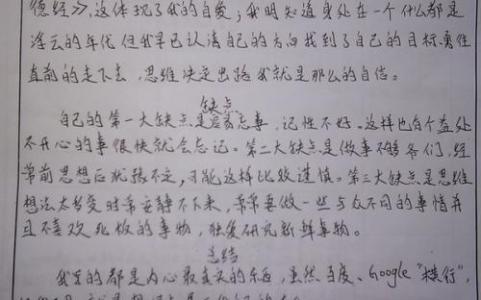 德经》，这体现了我的自爱；我明知道身处在一个什么都是
浮云的年代，但我早已认清自己的方向找到了自己的目标，勇往
直前的走下去，思维决定出路我就是那么的自信。
缺点
自己的第一大缺点是容易忘事，记性不好。这样也有个益处
不开心的事很快就会忘记。第二大缺点是做事不够爷们，经
常前思想后犹豫不定，可能这样比较谨慎。第三大缺点是思维
想法太多变时常安静不下来，常常要做一些与众不同的事情并
且不喜欢死板的事物，独爱研究新鲜事物。
总结
我写的都是内心最真实的东西，虽然百度、Google "横行"，